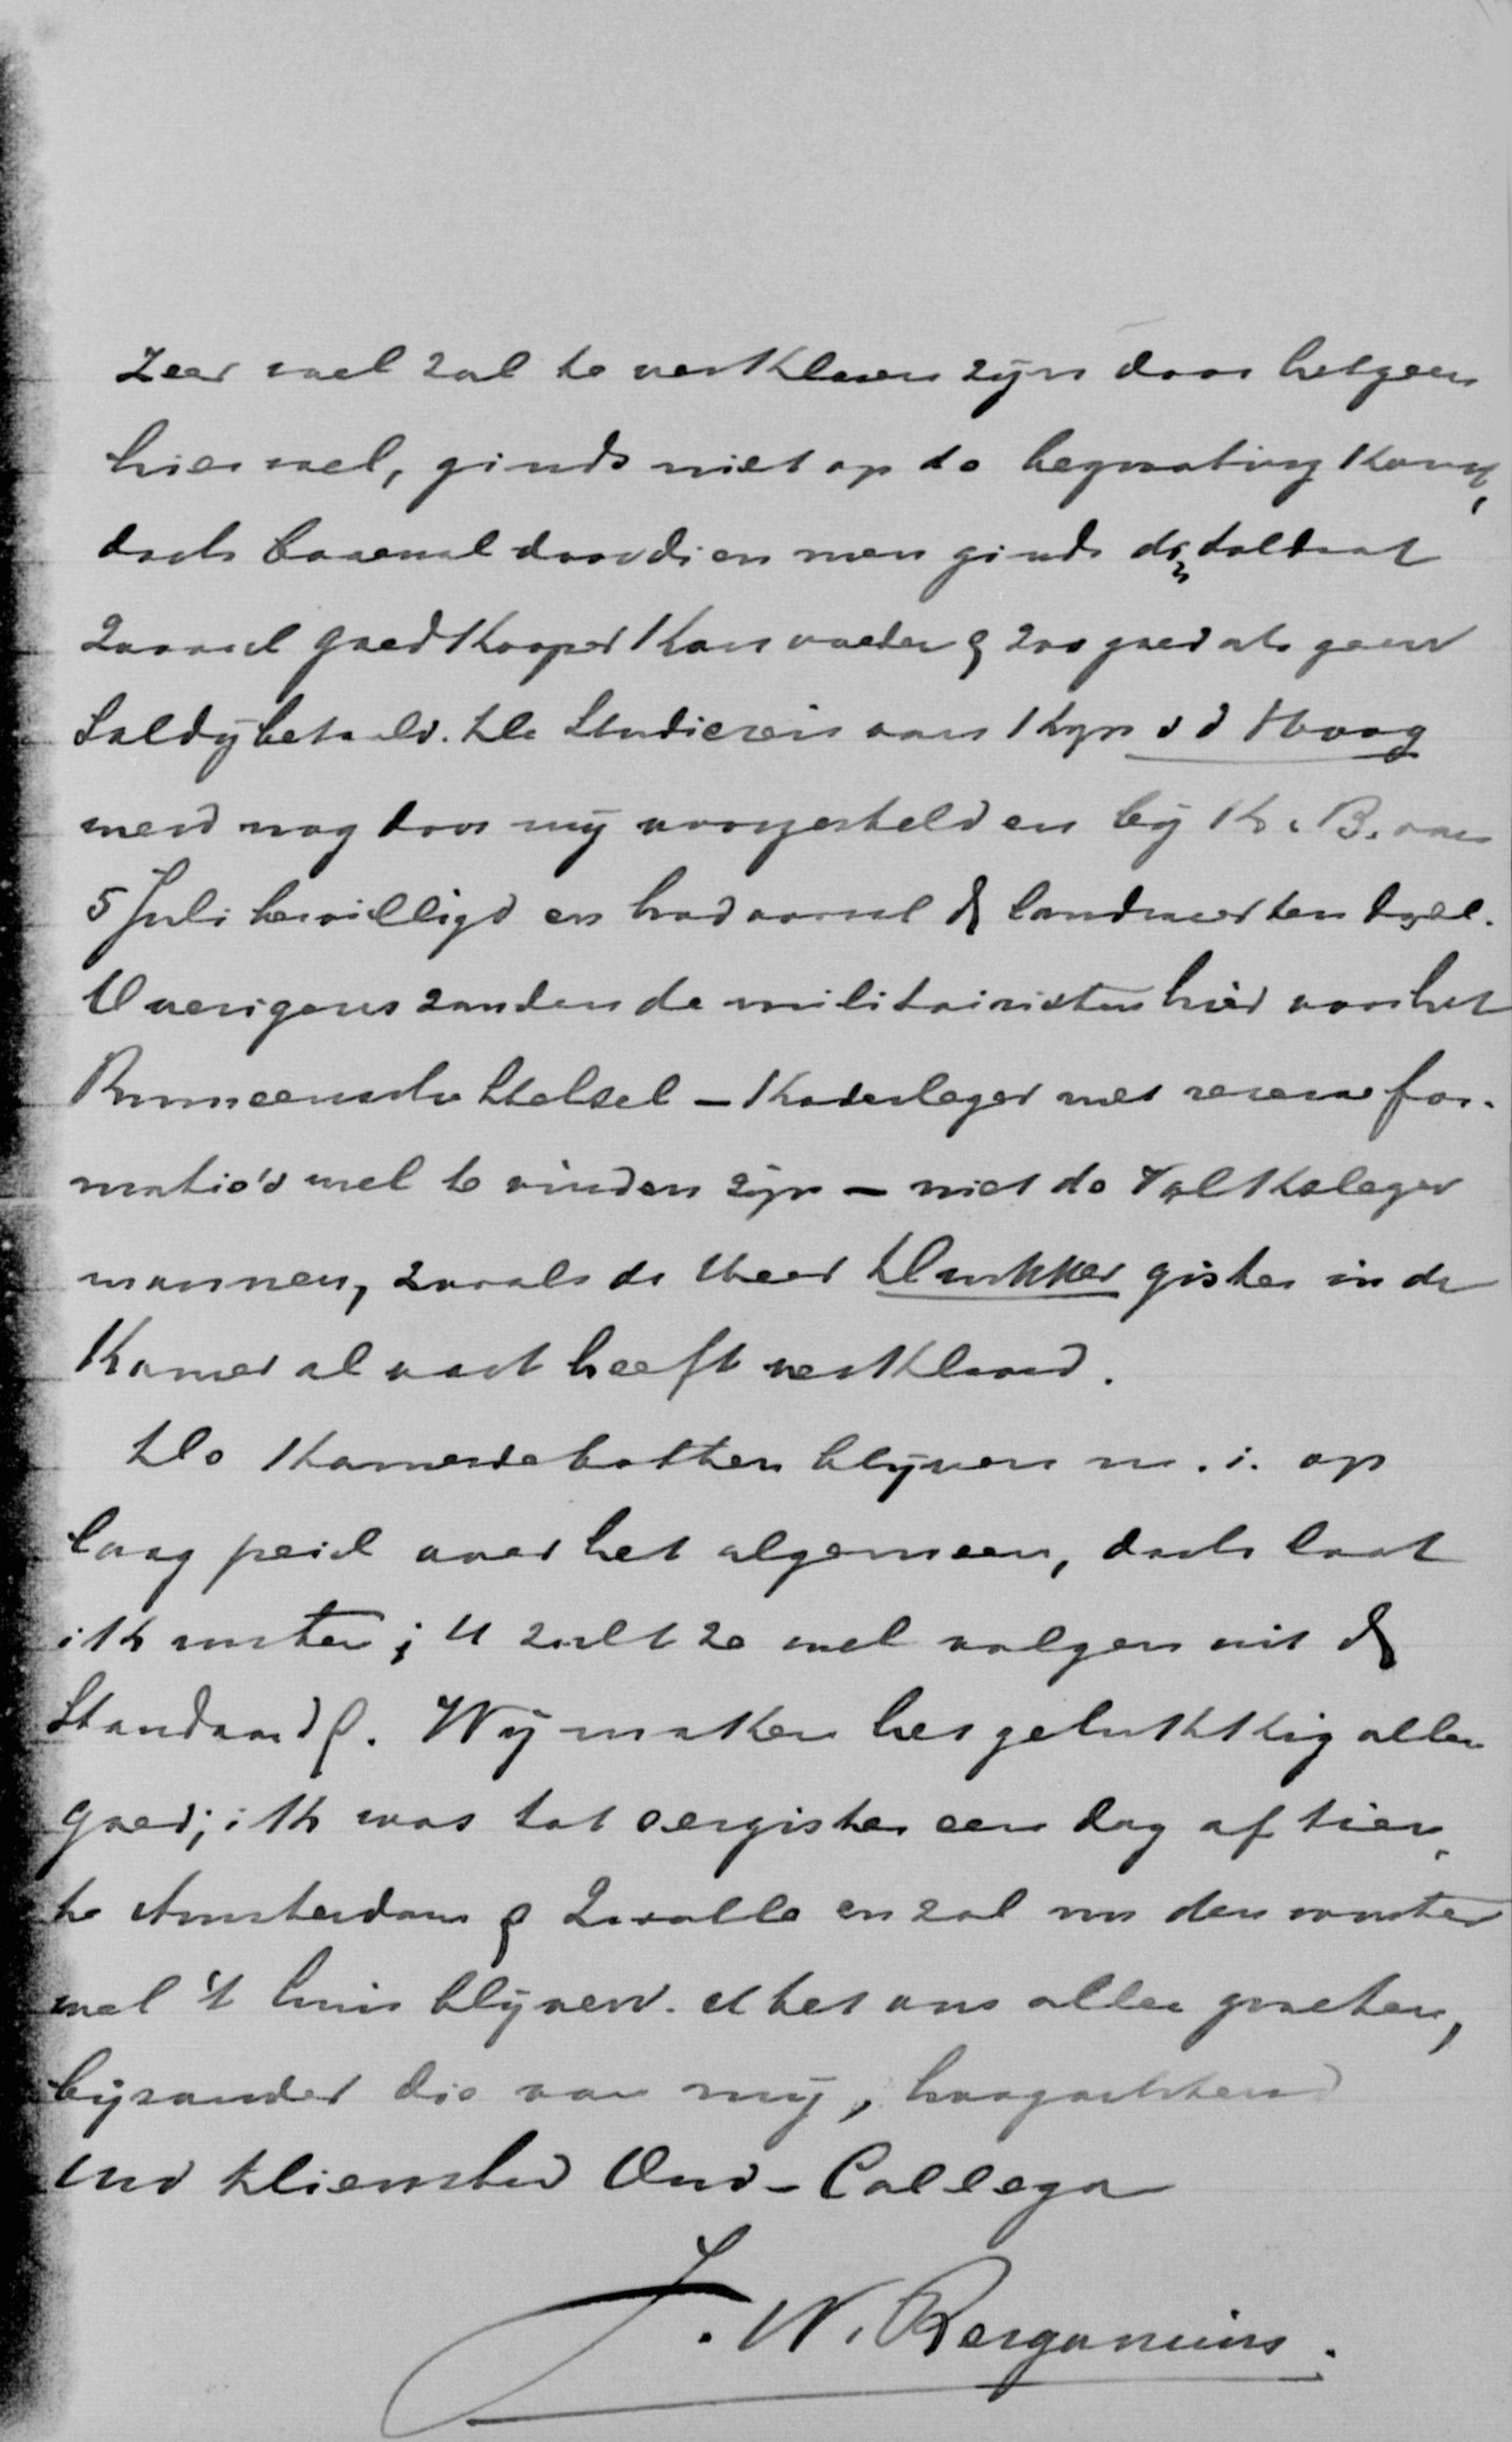 Zeer wel zal te verklaren zijn door hetgeen
hier wel, ginds niet op de begrooting komt,
doch bovenal doordien men ginds den soldaat
zooveel goedkooper kan voeden & zoo goed als geen
soldij betaald. De Studiereis van Kapn v d Hoog
werd nog door mij voorgesteld en bij K. B. van
5 Juli bewilligd en had vooral de landweer ten doel.
Overigens zouden de militairisten hier voor het
Rumeensche Stelsel – Kaderleger met reserve for-
matie's wel te vinden zijn – niet de Volksleger
mannen, zooals de Heer Duckker gister in de
Kamer al vast heeft verklaard.
De Kamerdebatten blijven m. i. op
laag peil over het algemeen, doch laat
ik rusten; U zult ze wel volgen uit de
Standaard &. Wij maken het gelukkig allen
goed; ik was tot eergister een dag of tien
te Amsterdam & Zwolle en zal nu den winter
wel 't huis blijven. Met ons aller groeten,
bijzonder die van mij, hoogachtend
Uw Dienstw Oud-Collega
J. W. Bergansius.